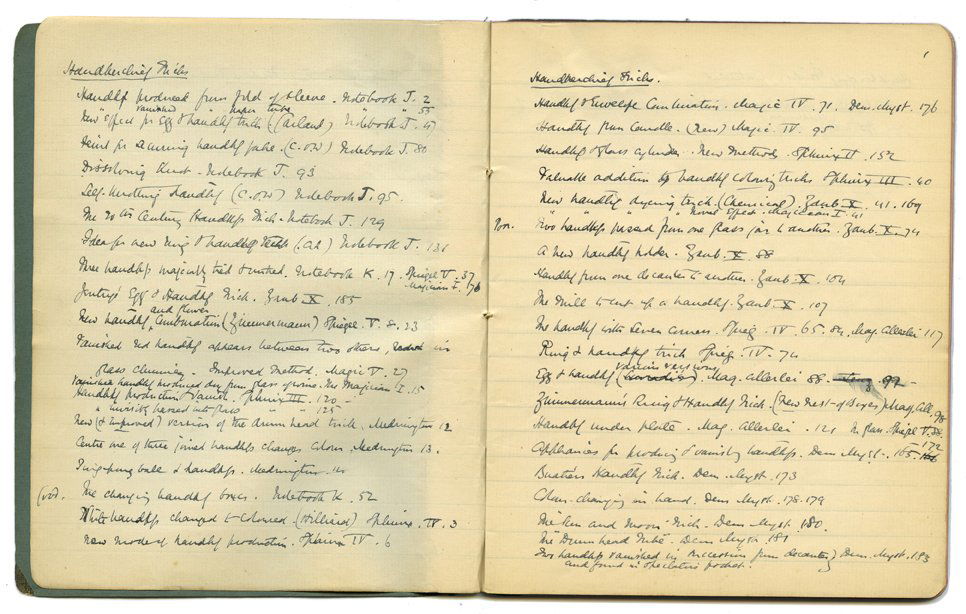 Handkerchief Tricks
Handkf produced from fold of sleeve. Notebook J. 2
" vanished " paper tube " " 55
New effect for Egg & handkf trick (Garland) Notebook J. 47
for securing handkf pulse. (C.O.W) Notebook J. 80
Dissolving Knot. Notebook J. 93
Self-knotting Handkf (C.O.W) Notebook J. 95.
The 20th Century Handkfs Trick. Notebook J. 129
Idea for new ring & handkf . Notebook J. 131
Three handkfs magically tied & untied. Notebook K. 17. Spiegel V. 37
Magician I. 176
Egg & Handkf Trick. Zaub X. 185
and flower
New handkf Combination (Zimmermann) Spiegel. V. 8. 23
Vanished red handkf appears between two others, in
glass chimney. Improved method. Magic V. 27
Vanished handkf produced dry from glass of wine. The Magician I. 15
Handkf production & vanish. Sphinx III. 120 -
" passed into glass " " 125
New (& improved) version of the drum head trick. Medrington 12
Centre one of three joined handkfs changes colour. Medrington 13.
ball & handkfs. Medrington. 14
The changing handkf boxes. Notebook K. 52
White handkfs changed to coloured. (Hilliard) Sphinx. IV. 3
New mode of handkf production. Sphinx IV. 6
1
Handkerchief Tricks.
Handkf & Envelope Combination. Magic IV. 71. Dem. Myst. 176
Handkf from Candle. (New) Magic IV. 95
Handkf & glass cylinder. New Methods. Sphinx II. 152
Valuable addition to handkf colouring tricks Sphinx III. 40
New handkf dyeing trick. (Chemical). Zaub X. 41. 169
" " " " Novel Effect. Magician I. 41
Two handkfs passed from one glass jar to another. Zaub. X. 74
A new handkf holder. Zaub. X. 88
Handkf from one decanter to another. Zaub. X. 104
The Mill to cut up a handkf. Zaub X. 107
The handkf with seven corners. Spieg. IV. 65. 84. Mag. Allerlei 117
Ring & handkf trick Spieg. IV. 74
various versions
Egg & handkf Mag. Allerlei 88. 92 -
Zimmermann's Ring & Handkf Trick. (New Nest of Boxes) Mag. All. 98
Handkf under plate. Mag. Allerlei. 121 Spiegel V. 38.
172
Appliances for producing & vanishing handkfs. Dem Myst. 165
Buatier's Handkf Trick. Dem. Myst. 173
Colour-changing in hand. Dem Myst. 178. 179
The "Sun and Moon" Trick. Dem Myst. 180.
The "Drumhead Tube". Dem Myst. 181
Two handkfs vanished in succession from decanter) Dem. Myst. 183
and found in spectator's pocket.